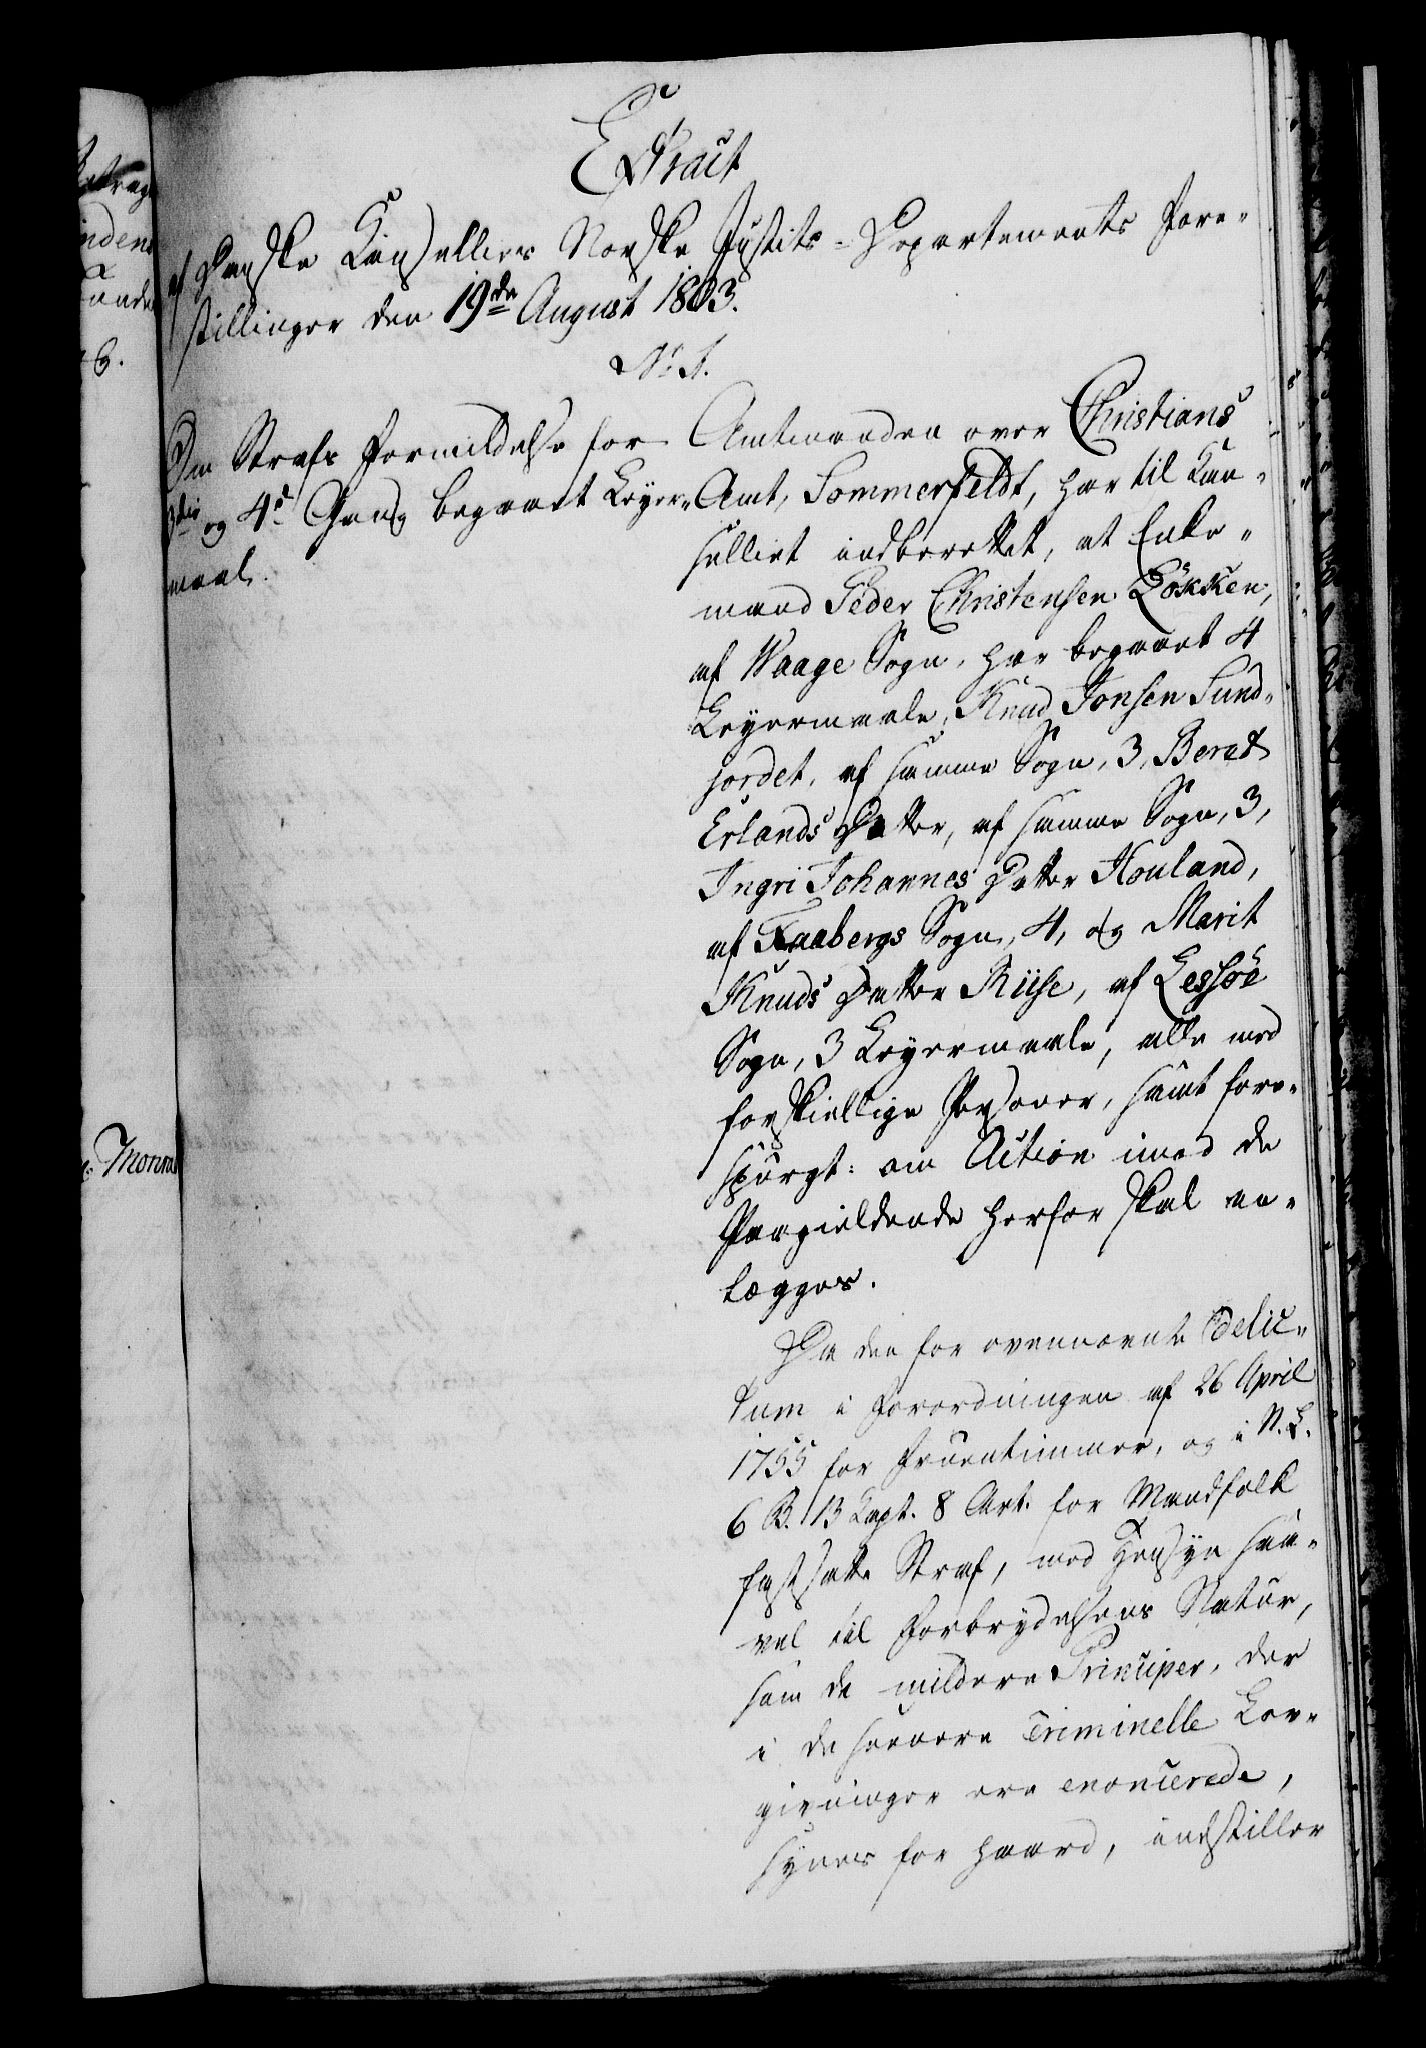 Extract
af Danske Cancelliets Norske Justits-Departements Fore-
stillinger den 19de August 1803.
No 1.
Om Strafs Formildelse for
3die og 4de Gang begaaet Leyer-
maal.
Amtmanden over Christians
Amt, Sommerfeldt, har til Can-
celliet indberettet, at Enke-
mand Peder Christensen Løkken,
af Waage Sogn, har begaaet 4
Leyermaale, Knud Jonsen Sund-
jordet, af samme Sogn, 3, Beret
Erlands Datter, af samme Sogn, 3,
Ingri Johannes Datter Houland,
af Faabergs Sogn, 4, og Marit
Knuds Datter Riise, af Lessøe
Sogn, 3 Leyermaale, alle med
forskiellige Personer, samt fore-
spurgt: om Action imod de
Paagieldende herfor skal an-
lægges.
Da den for ovennævnte Delic-
tum i Forordningen af 26 April
1755 for Fruentimmer, og i N. L.
6 B. 13 Capt. 8 Art. for Mandfolk
fastsatte Straf, med Hensyn saa-
vel til Forbrydelsens Natur,
som de mildere Principer, der
i de senere Criminelle Lov-
givninger ere enoncerede,
synes for haard, indstiller